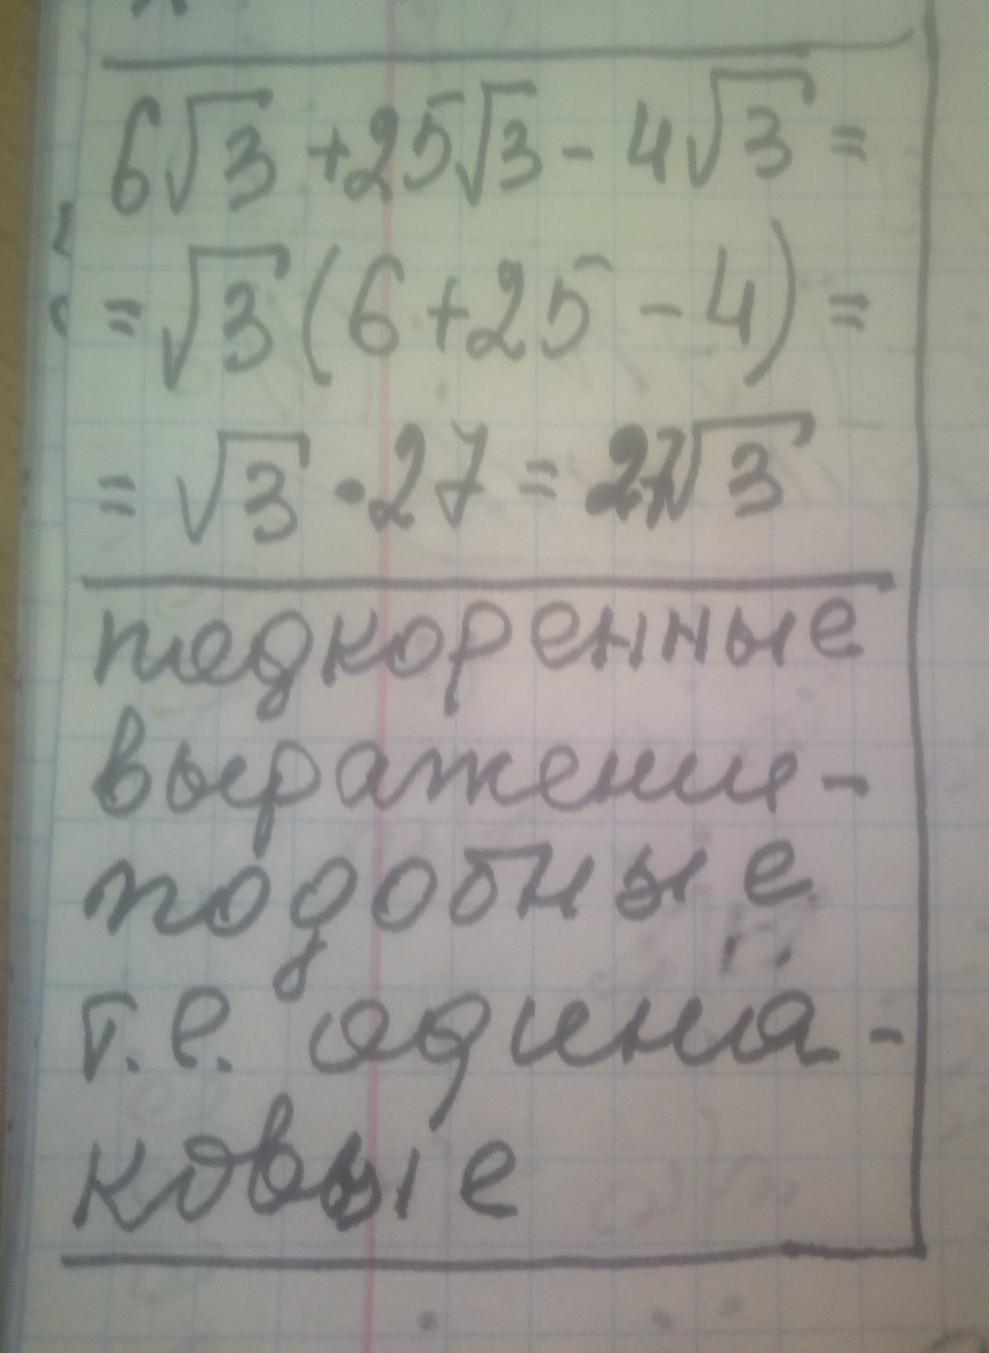 6√3 + 25√3 - 4√3 =
= √3 (6 + 25 - 4) =
= √3 · 27 = 27√3
подкоренные
выражени-
подобные
т.е. одина-
ковые